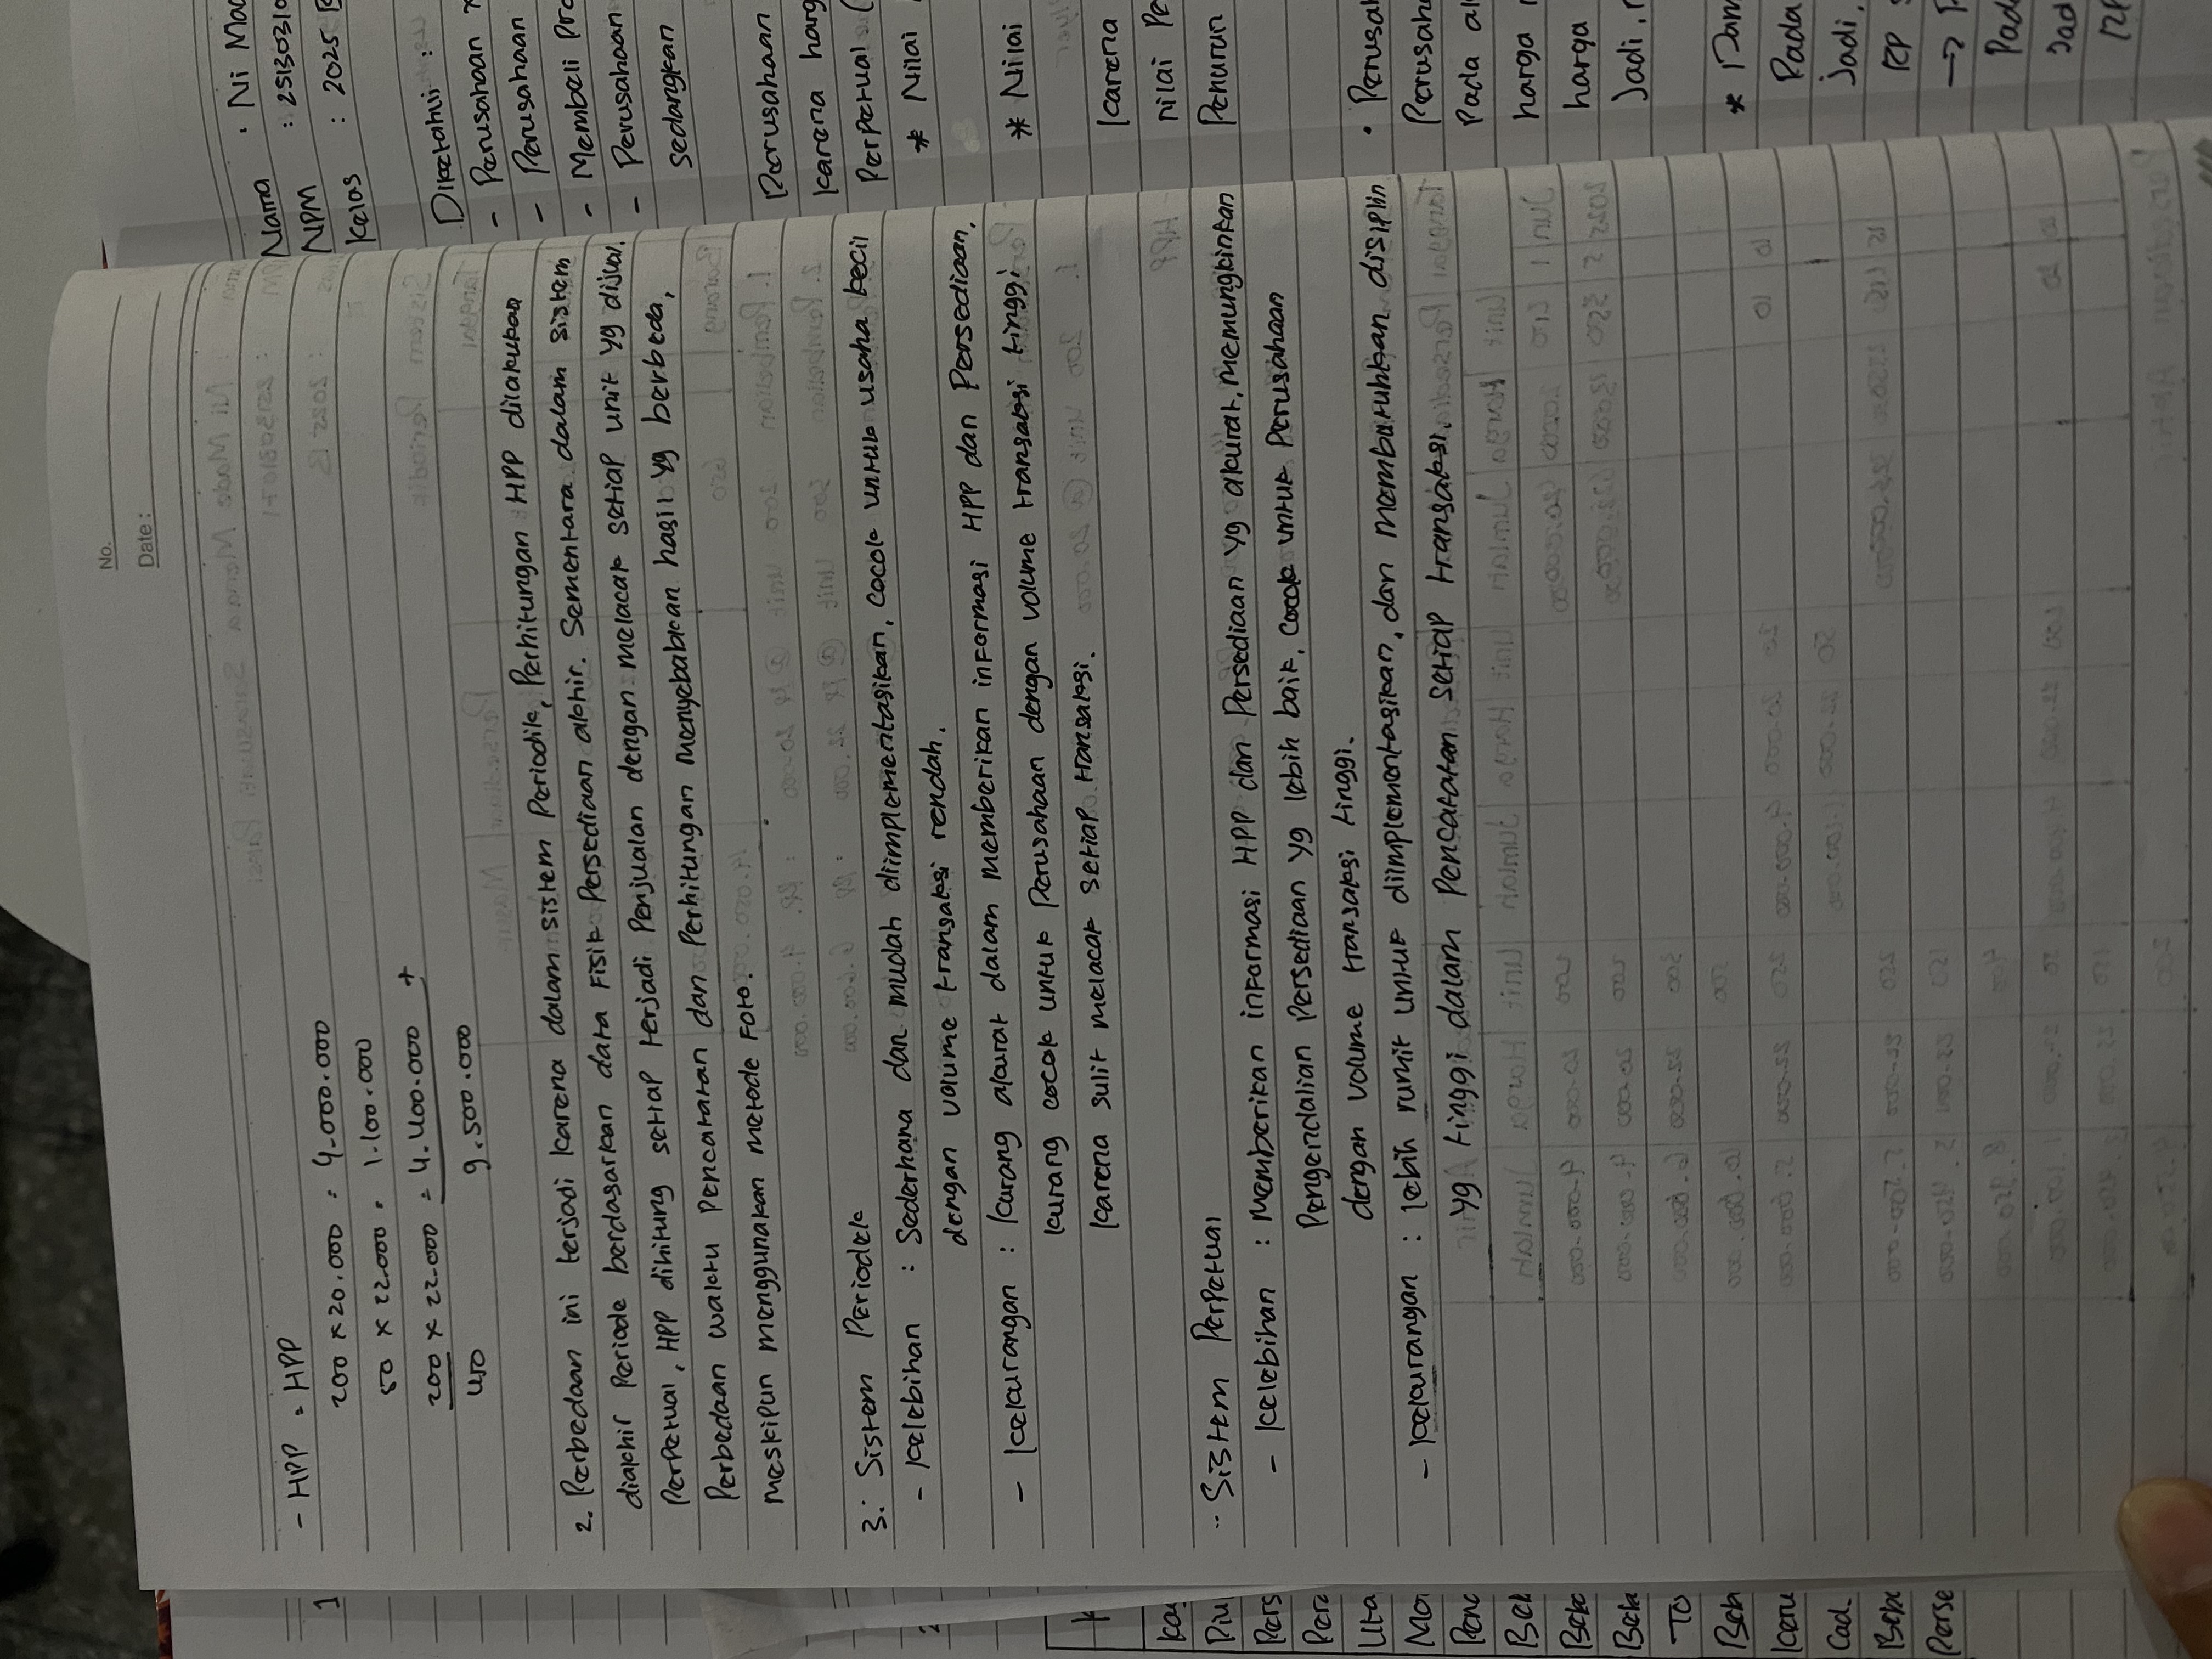 No.
Date :
- HPP = HPP
200 x 20.000 = 4.000.000
50 x 22.000 = 1.100.000
200 x 22.000 = 4.400.000 +
450 9.500.000
2. Perbedaan ini terjadi karena dalam sistem Periodik, Perhitungan HPP dilakukan
diakhir Periode berdasarkan data Fisik Persediaan akhir. Sementara dalam sistem
Perpetual, HPP dihitung setiap terjadi Penjualan dengan melacak setiap unit yg dijual.
Perbedaan waktu Pencatatan dan Perhitungan menyebabkan hasil yg berbeda,
meskipun menggunakan metode FOFO.
3. Sistem Periodek
- kelebihan : Sederhana dan mudah diimplementasikan, cocok untuk usaha kecil
dengan volume transaksi rendah.
- kekurangan : kurang akurat dalam memberikan informasi HPP dan Persediaan,
kurang cocok untuk Perusahaan dengan volume transaksi tinggi
karena sulit melacak setiap transaksi.
Sistem Perpetual
- kelebihan : Memberikan informasi HPP dan Persediaan yg akurat, memungkinkan
Pengendalian Persediaan yg lebih baik, cocok untuk Perusahaan
dengan volume transaksi tinggi.
- kekurangan : lebih rumit untuk diimplementasikan, dan membutuhkan disiplin
yg tinggi dalam Pencatatan setiap transaksi.
Nama : Ni Mad
NPM : 25130310
kelas : 2025
Diketahui :
- Perusahaan
- Perusahaan
- Membeli Pro
- Perusahaan
sedangkan
Perusahaan
karena harg
Perpetual (
* Nilai
* Nilai
karena
nilai Pe
Penurun
• Perusah
Perusaha
Pada a
harga
harga
Jadi,
* Dam
Pada
Jadi,
RP
→
Pad
Jad
RP
1
Piu
Pers
Pera
Uta
Mo
Penc
Beb
Beb
To
Beb
Cad.
Beba
Perse